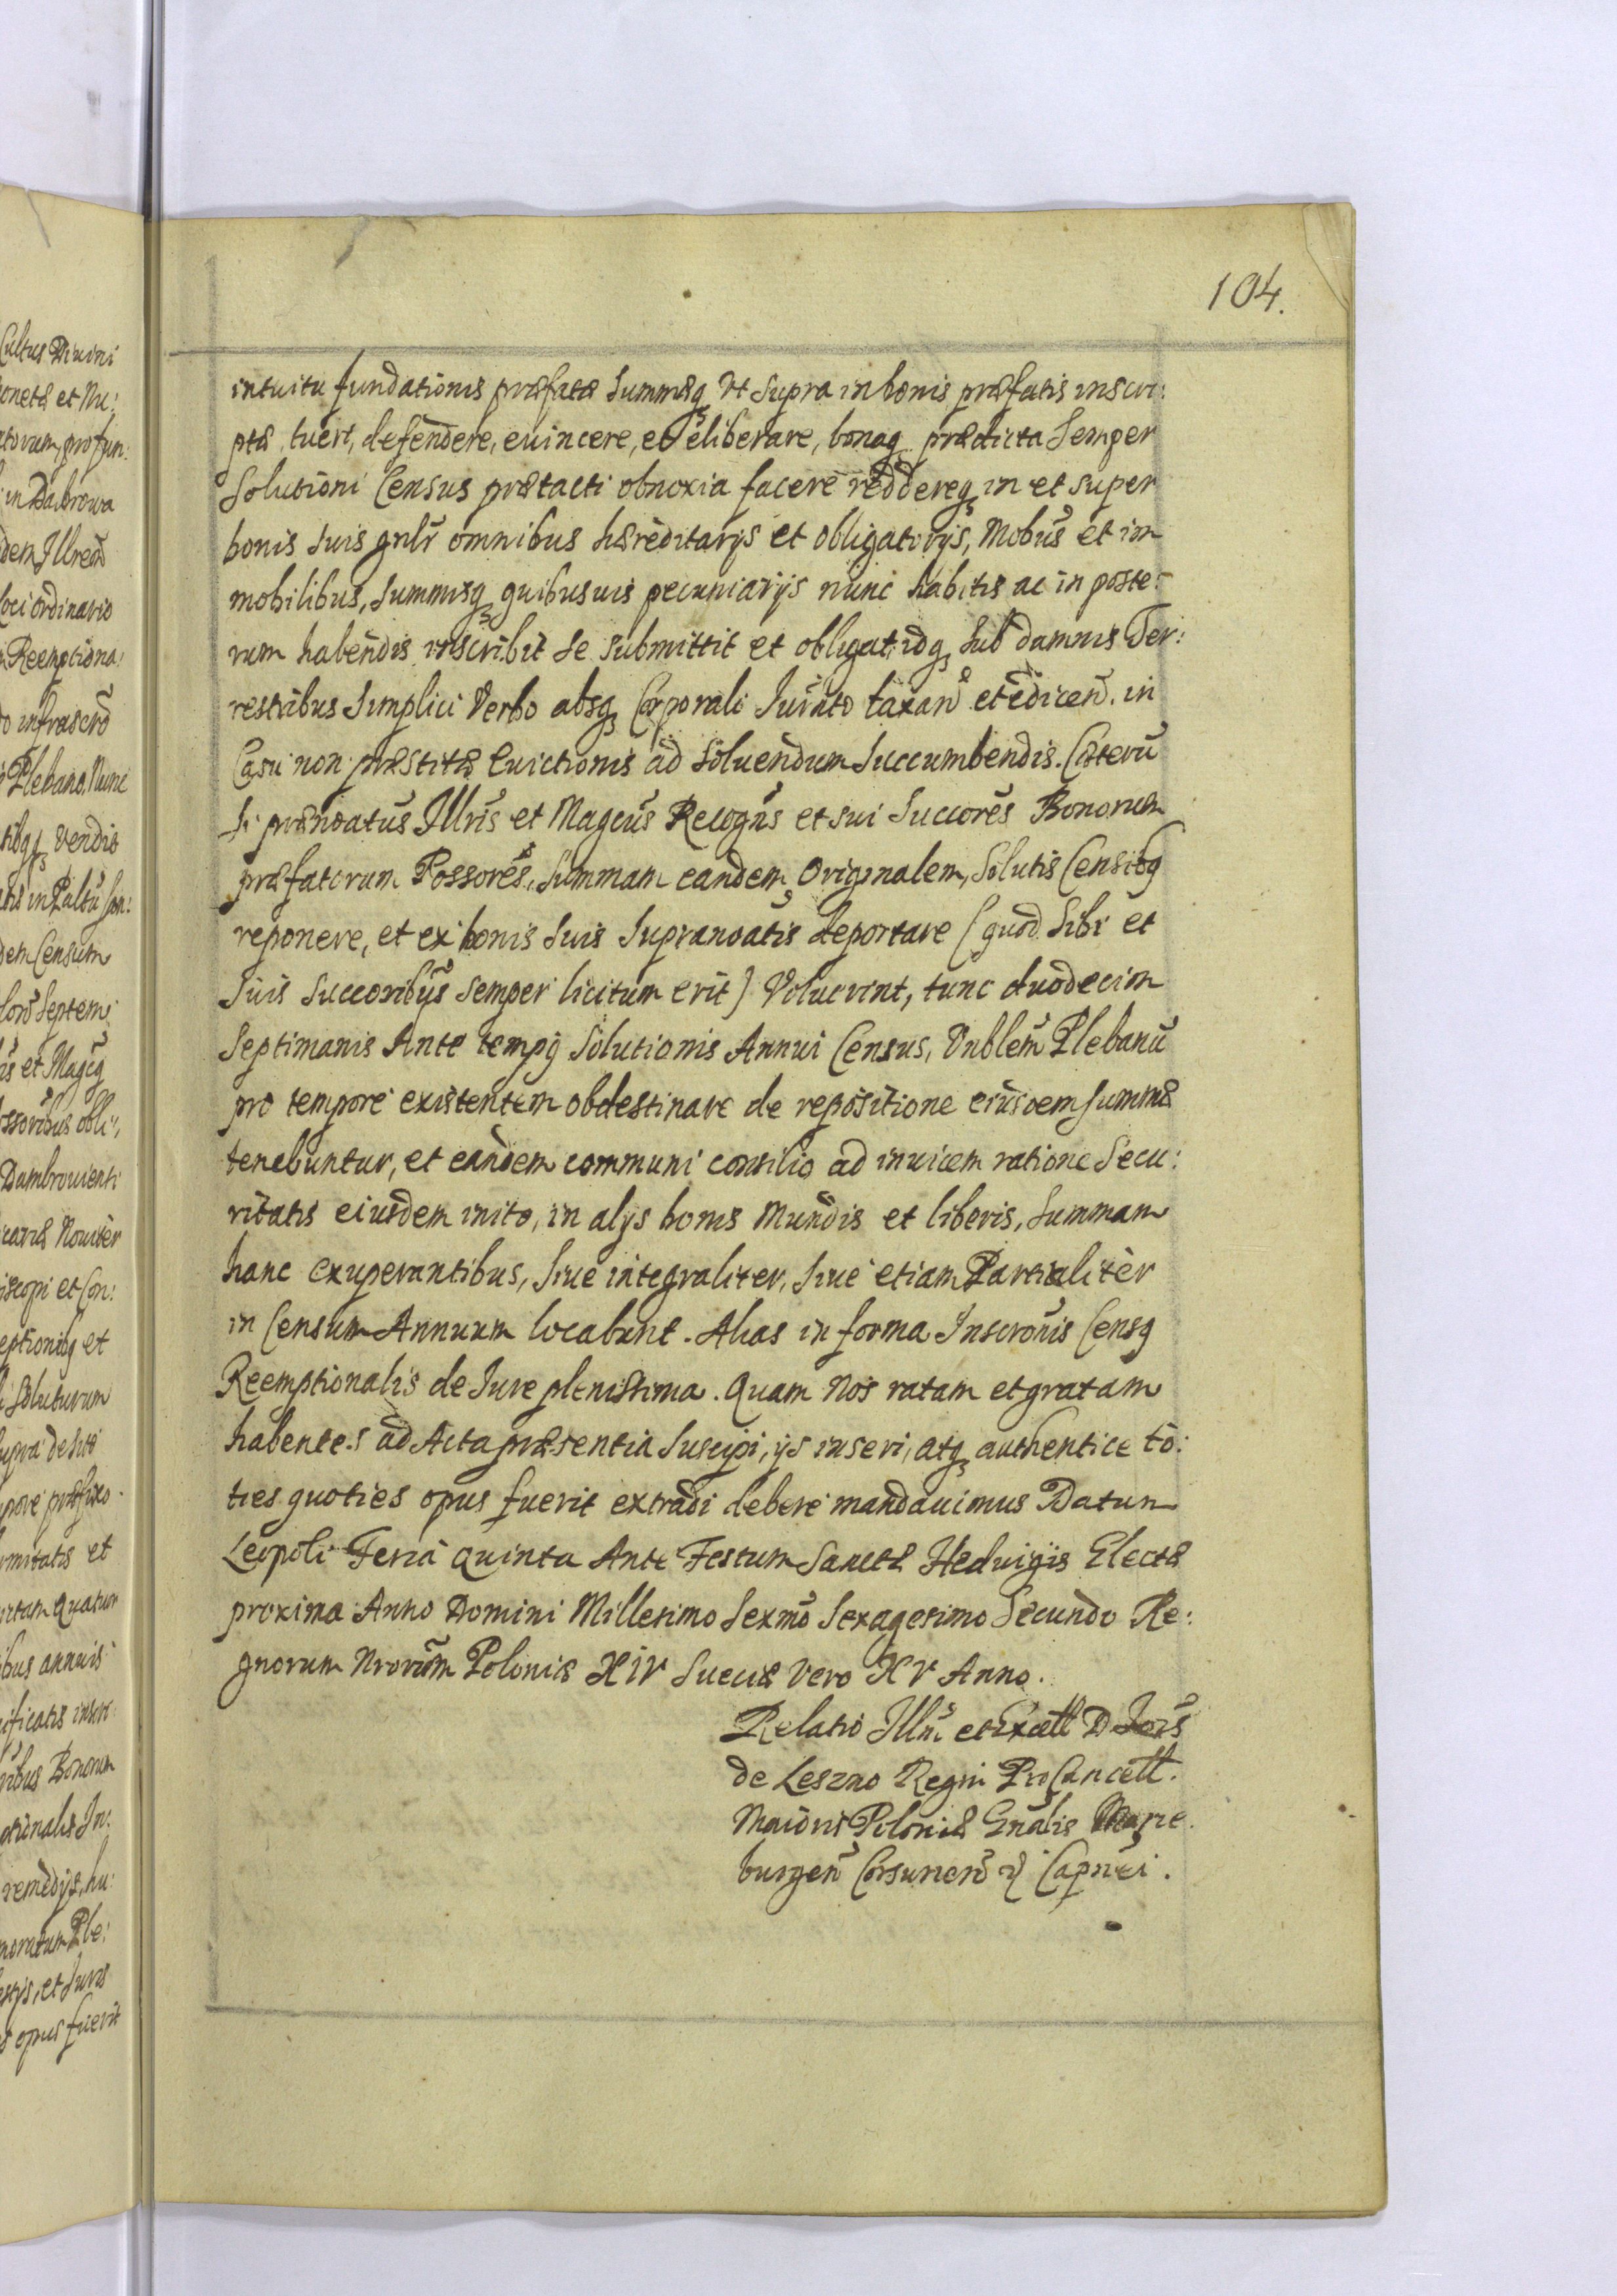 104.
intuitu fundationis præfatæ summæq₃ ut supra in bonis præfatis inscri:
ptæ tueri, defendere, euincere, et eliberare, bonaq₃ prædicta semper
Solutioni Census prætacti obnoxia facere reddereq₃ in et super
bonis suis gnlr̃ omnibus hæreditarijs et obligatorijs, Mobus̃ et im
mobilibus, Summisq₃ quibusuis pecuniarijs nunc habitis ac in poste:
rum habendis inscribit se submittit et obligat, idq₃ sub damnis Ter:
restribus simplici Verbo absq₃ Corporali Iurñto taxañ et edicend̃. in
Casu non præstitæ Euictionis ad soluendum Succumbendis. Cæterũ
si prænoatus̃ Illris̃ et Magcus̃ Recogñs et sui Succores̃ Bonorum
præfatorum Possores̃, Summam eandem Originalem, Solutis Censibq
reponere, et ex bonis suis supranoatis̃ deportare (quod sibi et
Suis Succoribus̃ semper licitum erit) Voluerint, tunc duodecim
Septimanis Ante tempq Solutionis Annui Census, Vnblem̃ Plebanũ
pro tempore existentem obdestinare de repositione eiusdem summæ
tenebuntur, et eandem communi consilio ad inuicem ratione Secu:
ritatis eiusdem inito, in alijs bonis Mundis et liberis, Summam
hanc exuperantibus, siue integraliter, siue etiam Partialiter
in Censum Annuum locabunt. Alias in forma Inscronis̃ Censq
Reemptionalis de Iure plenissima. Quam Nos ratam et gratam
habentes ad Acta præsentia Suscipi, ijs inseri, atq₃ authentice to:
ties quoties opus fuerit extradi debere mandauimus Datum
Leopoli Feria Quinta Ante Festum Sanctæ Heduigis Electæ
proxima Anno Domini Millesimo Sexmõ Sexagesimo Secundo Re:
gnorum Nrorũm Poloniæ XIV Sueciæ Vero XV Anno.
Relatio Illmĩ et Excell D Iois̃
de Leszno Regni ProCancell.
Maioris Poloniæ Gnalis̃ Marie
burgeñ Corsuneñ Capnei.
Cultus Diuini
onetæ et Nu:
atorum, pro fun:
in Dabrowa
dem Illrem̃
loci ordinario
Reemptiona:
Plebano, Nunc
vendit
dem Censum
Septem:
Dambrouienti
Nouiter
iscopi et Con:
eptionibq et
Soluturum
upra de hæ
pore præfixo
rmitatis et
Quatuor
ibus annuis
ificatis inscri
ribus Bonorum
ptionalis In:
remedijs, hu:
moratum Ple:
et Iuris
s opus fuerit